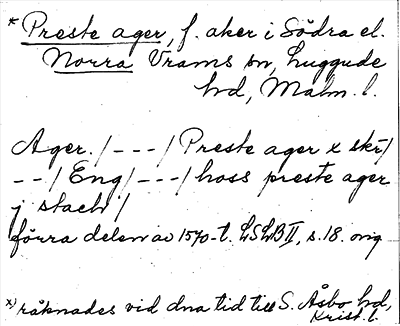 * Preste ager, f. aker i Södra el.
Norra Vrams sn, Luggude
hd, Malm. l.
Ager. / - - - / Preste ager x skr /
- - / Eng / - - - / hoss preste ager
j staehr /
förra delen av 1570-t. LSLB II, s. 18. orig
x) räknades vid dna tid till S. Åsbo hd,
Krist. l.